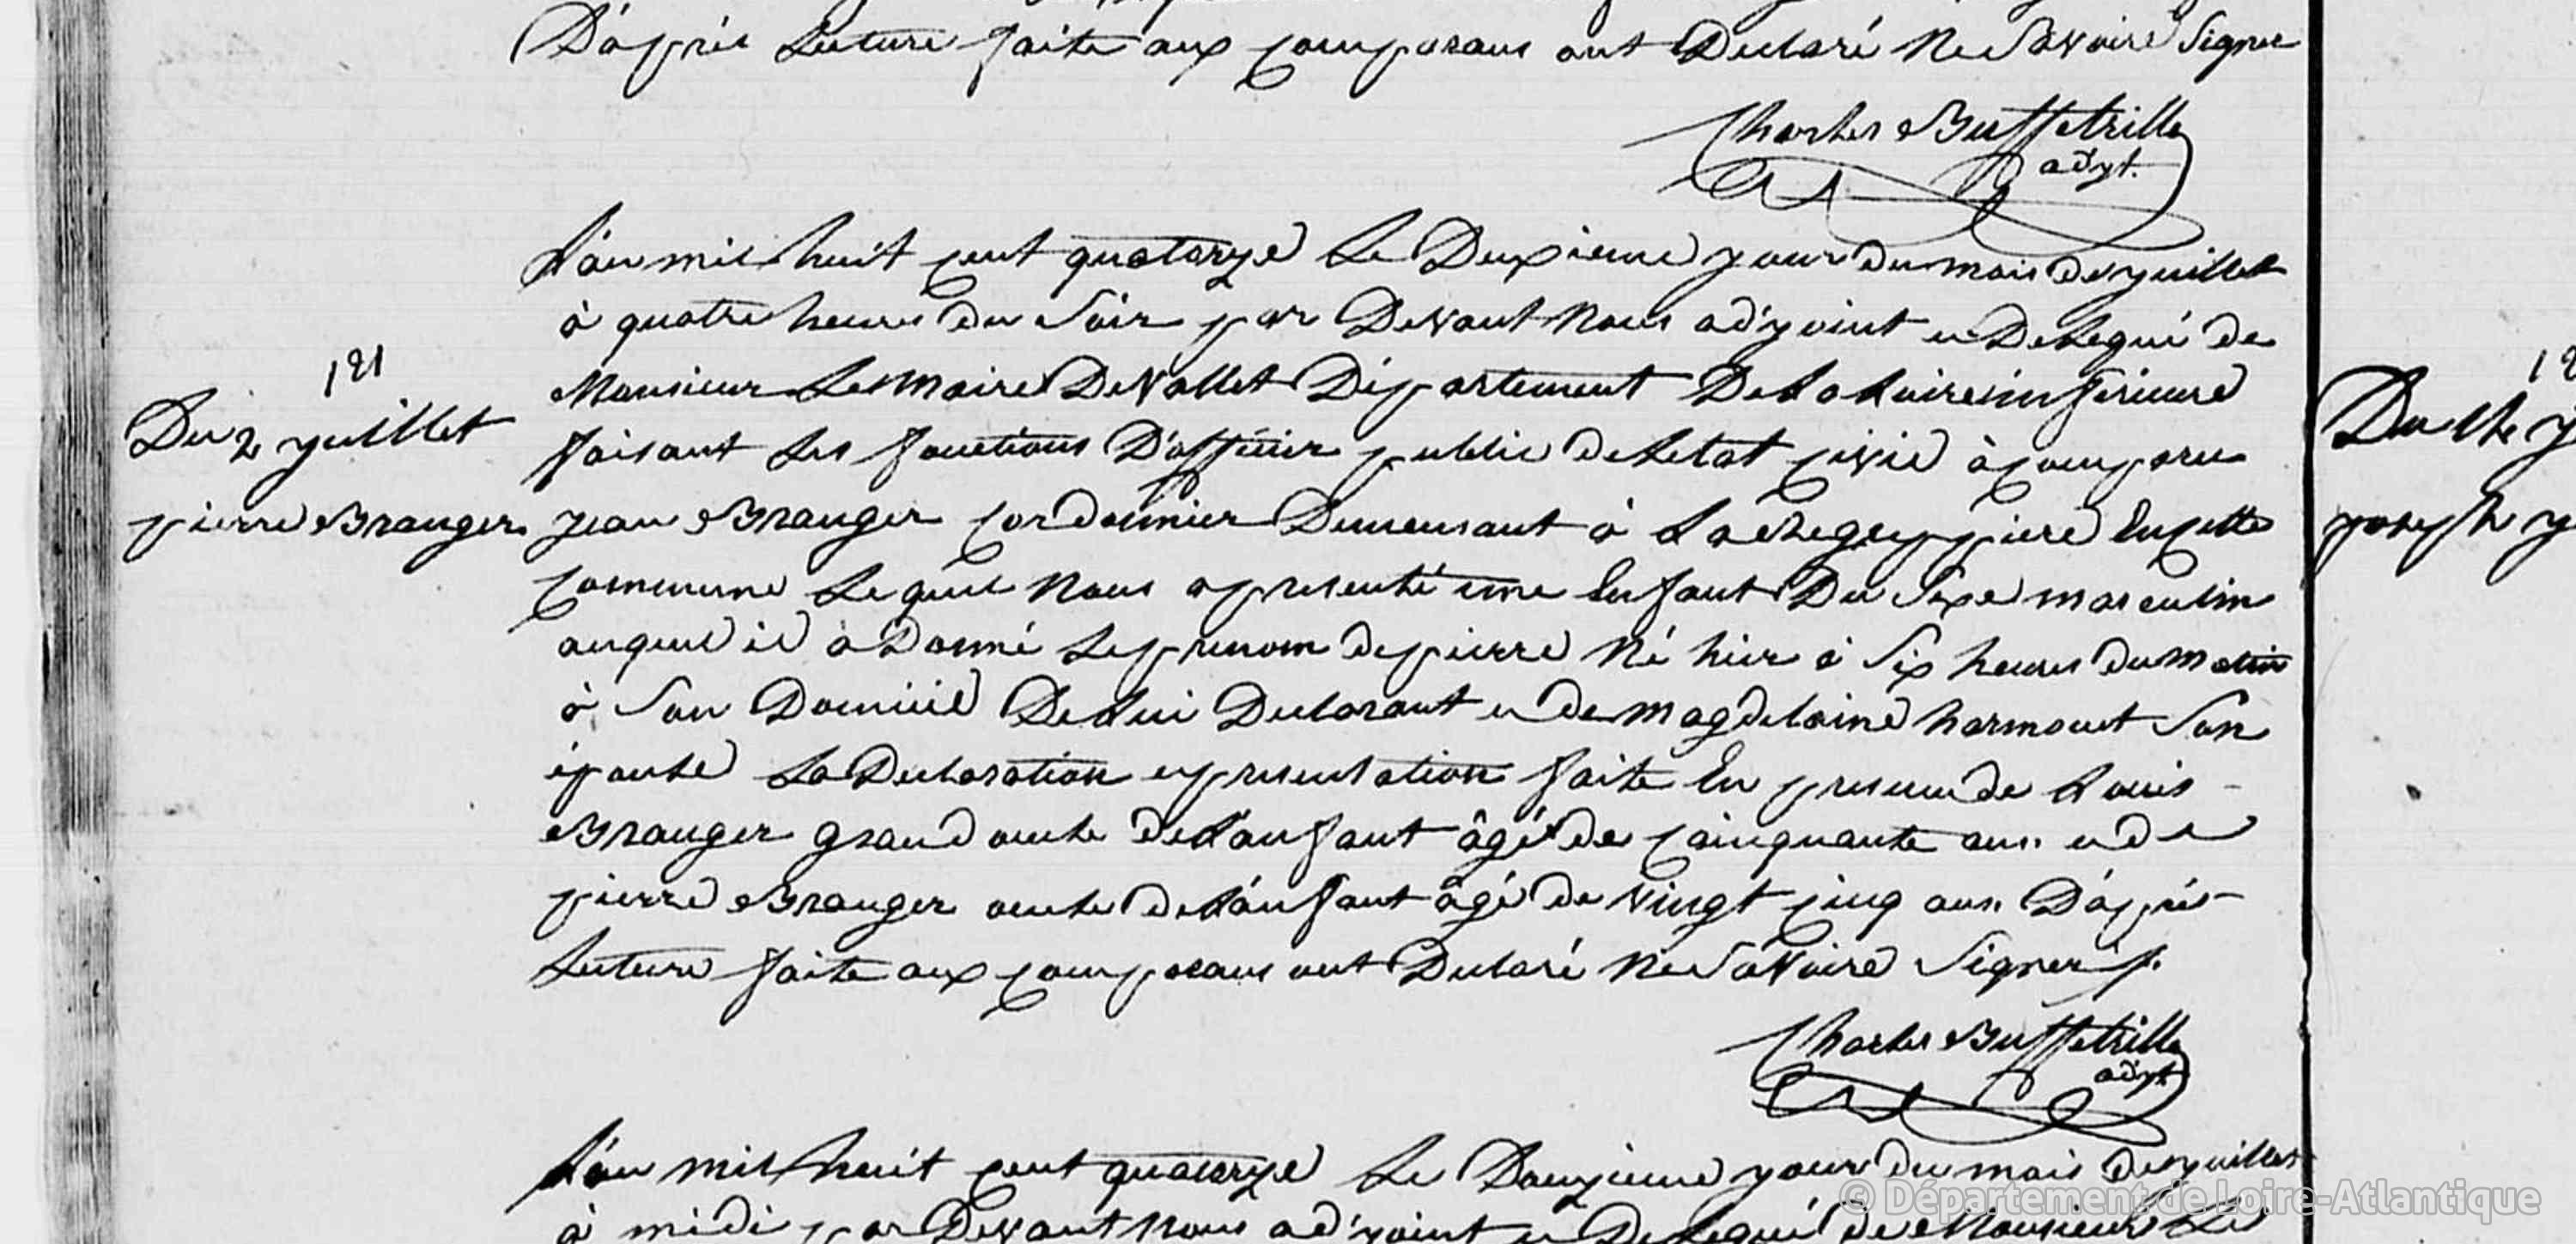 D'áprés Lecture faite aux comparans ont Declaré Ne Savoire Signer
Charles Buffetrille
adjt.
L'án mil huit cent quatorze Le Deuxieme jour du mois de juillet
à quatre heures du Soir par Devant Nous adjoint et Delegué de
Monsieur Le Maire De Vallet Département De La Loire inferieure
faisant Les fonctions D'officier public de L'etat civil à comparu
121
Du 2 juillet
pierre Branger
jean Branger cordonnier Demeurant à en cette
commune Lequel Nous a presenté une Enfant Du Sexe masculin
auquel il à Donné Le prenom de pierre Né hier à Six heures du matin
à Son Domicile De Lui Declarant et de Magdelaine harmouet Son
épouse La Declaration et presentation faite En presence de Louis
Branger grand oncle de L'anfant âgé de cainquante ans et de
pierre Branger oncle de L'ánfant âgé de vingt cinq ans D'áprés
Lecture faite aux comparans ont Declaré Ne Savoire Signer
Charles Buffetrille
adjt
L'án mil huit cent quatorze Le Douzieme jour du mois de juillet
à midi par Devant Nous adjoint et Delegué de Monsieur Le
Du 12
joseph
© Département de Loire-Atlantique